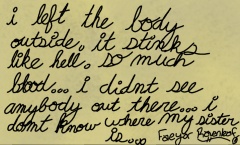 i left the body
outside, it stinks
like hell, so much
blood... i didnt see
anybody out there... i
dont know where my sister
is...